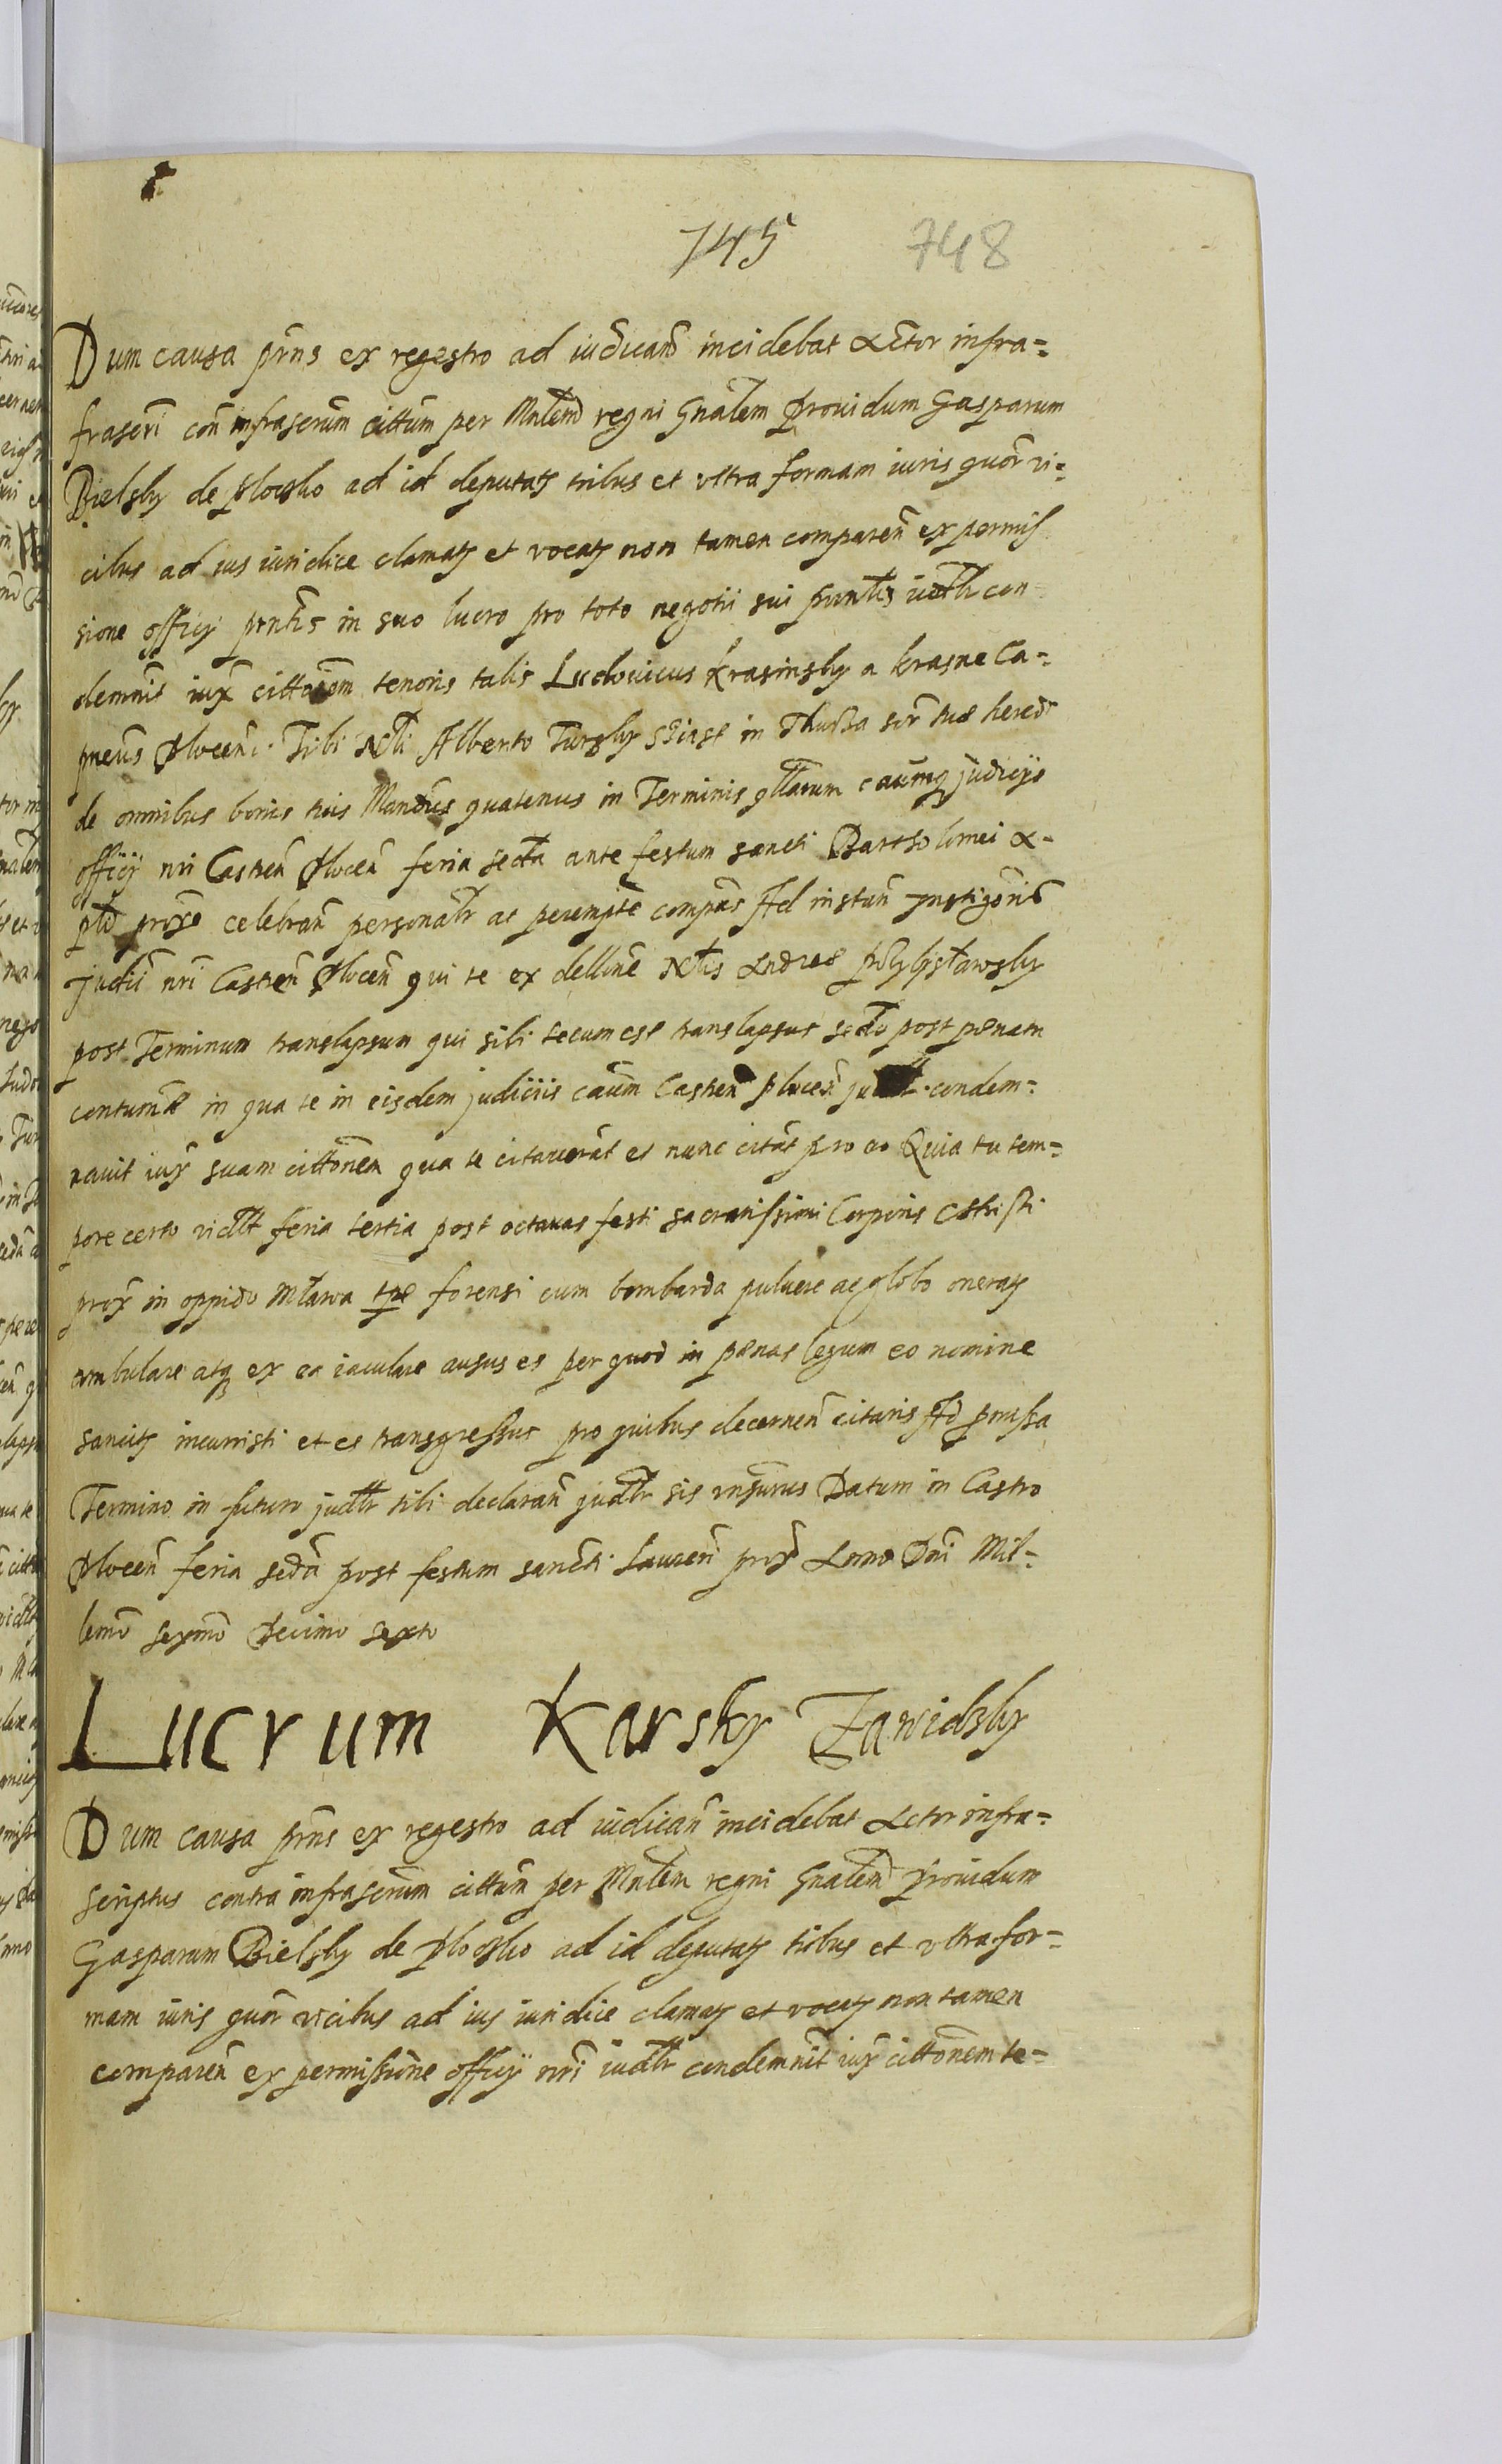 745 748
Dum causa prns ex regestro ad iudicand incidebat Actor infra=
frascri con infrascrum cittum per Mnlem regni Gnalem Prouidum Gasparum
Bielsky de Plocsko ad id deputat tribus et vltra formam iuris quor vi=
cibus ad ius iuridice clamat et vocat non tamen comparen ex permis
sione officy prntis in suo lucro pro toto negotii sui puncto iudlr con
demnit iux cittonem tenoris talis Ludouicus Krasinsky a Krasne Ca=
pneus Plocen. Tibi Nbli Alberto Tursky in Thussa her
de omnibus bonis tuis Mandus quatenus in Terminis qllarum caumq judicijs
officij nri Castren Plocen feria secda ante festum sancti Bartholomei A-
pli prox celebran personalr ac perempte compas Ad instan Instigoris
Judii nri Castren Plocen qui te ex dellone Nblis Andree
post Terminum translapsum qui sibi tecum est translapsus secdo post penam
contum in qua te in eisdem judiciis caum Castren Plocen condem=
nauit iux suam cittonem qua te citauerat et nunc citat pro eo Quia tu tem=
pore certo vidlt feria tertia post octauas festi sacratissimi Corporis Christi
prox in oppido Mlawa tpe forensi cum bombarda puluere ac globo onerat
ambulare atq ex ea iaculare ausus es per quod in penas legum eo nomine
sancit incurristi et es transgressus pro quibus decernen citaris Ad prmissa
Termino in futuro judlr tibi declaran judlr sis rnsurus Datum in Castro
Plocen feria secda post festum sancti Lauren prox Anno Dni Mil=
lemo sexmo Decimo sexto
Lucrum Karsky Zawidzky
Dum causa prns ex regestro ad iudican incidebat Actor infra=
scriptus contra infrascrum cittum per Mnlem regni Gnalem Prouidum
Gasparum Bielsky de Plocsko ad id deputat tribus et vltra for=
mam iuris quor vicibus ad ius iuridice clamat et vocat non tamen
comparen ex permissione officij nri iudlr condemnit iux cittonem te=